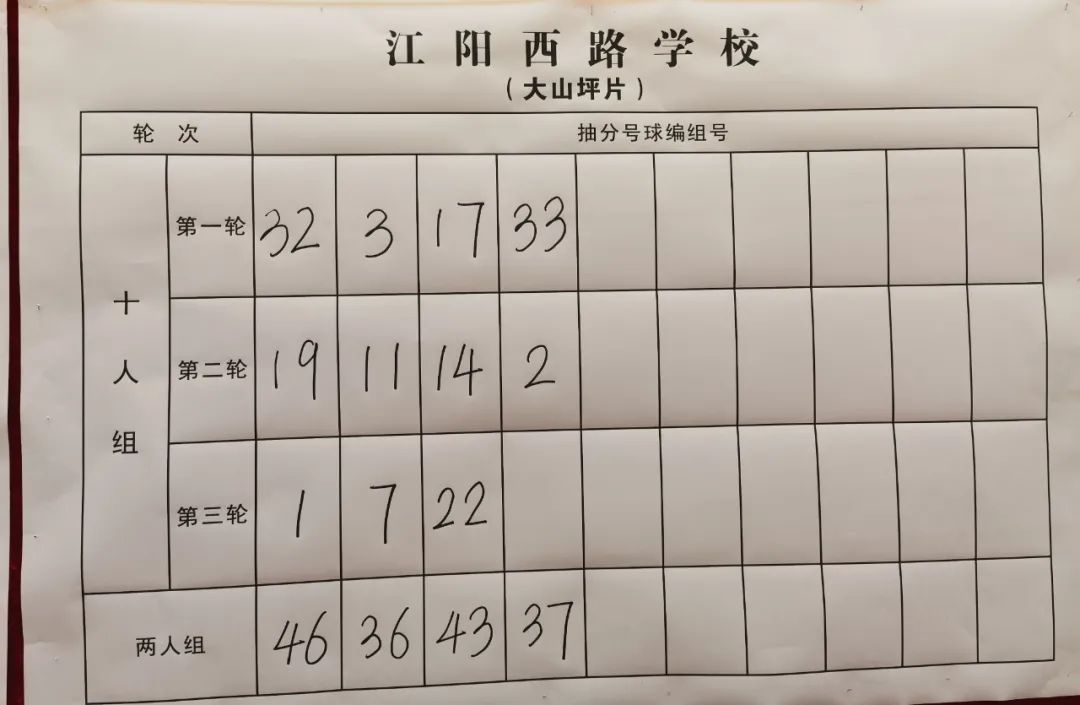 江阳西路学校
（大山坪片）
轮次 抽分号球编组号
十人组
第一轮 32 3 17 33
第二轮 19 11 14 2
第三轮 1 7 22
两人组 46 36 43 37